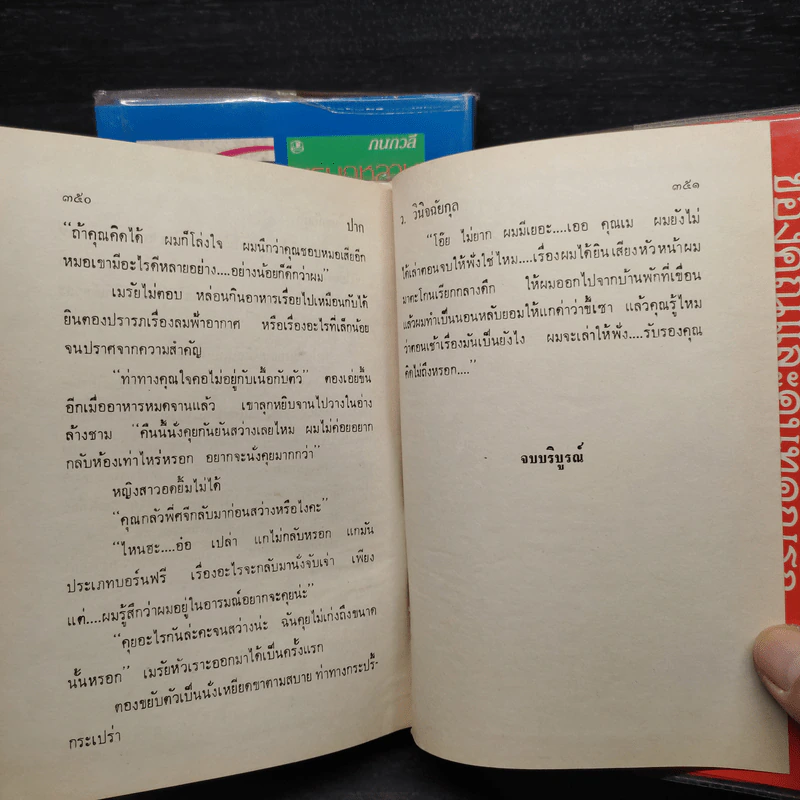 กนกวลี
๓๕๐
ปาก
“ถ้าคุณคิดได้ ผมก็โล่งใจ ผมนึกว่าคุณชอบหมอเสียอีก
หมอเขามีอะไรดีหลายอย่าง....อย่างน้อยก็ดีกว่าผม”
เมรัยไม่ตอบ หล่อนกินอาหารเรื่อยไปเหมือนกับได้
ยินตองปรารภเรื่องลมฟ้าอากาศ หรือเรื่องอะไรที่เล็กน้อย
จนปราศจากความสำคัญ
“ท่าทางคุณใจคอไม่อยู่กับเนื้อกับตัว” ตองเอ่ยขึ้น
อีกเมื่ออาหารหมดจานแล้ว เขาลุกหยิบจานไปวางในอ่าง
ล้างชาม “คืนนี้นั่งคุยกันยันสว่างเลยไหม ผมไม่ค่อยอยาก
กลับห้องเท่าไหร่หรอก อยากจะนั่งคุยมากกว่า”
หญิงสาวอดยิ้มไม่ได้
“คุณกลัวพี่ศจีกลับมาก่อนสว่างหรือไงคะ”
“ไหนฮะ....อ๋อ เปล่า แกไม่กลับหรอก แกมัน
ประเภทบอร์นฟรี เรื่องอะไรจะกลับมานั่งจับเจ่า เพียง
แต่....ผมรู้สึกว่าผมอยู่ในอารมณ์อยากจะคุยน่ะ”
“คุยอะไรกันล่ะคะจนสว่างน่ะ ฉันคุยไม่เก่งถึงขนาด
นั้นหรอก” เมรัยหัวเราะออกมาได้เป็นครั้งแรก
ตองขยับตัวเป็นนั่งเหยียดขาตามสบาย ท่าทางกระปรี้-
กระเปร่า
๓๕๑
ว. วินิจฉัยกุล
“โอ๊ย ไม่ยาก ผมมีเยอะ....เออ คุณเม ผมยังไม่
ได้เล่าตอนจบให้ฟังใช่ไหม....เรื่องผมได้ยินเสียงหัวหน้าผม
มาตะโกนเรียกกลางดึก ให้ผมออกไปจากบ้านพักที่เขื่อน
แล้วผมทำเป็นนอนหลับยอมให้แกด่าว่าขี้เซา แล้วคุณรู้ไหม
ว่าตอนเช้าเรื่องมันเป็นยังไง ผมจะเล่าให้ฟัง....รับรองคุณ
คิดไม่ถึงหรอก....”
จบบริบูรณ์